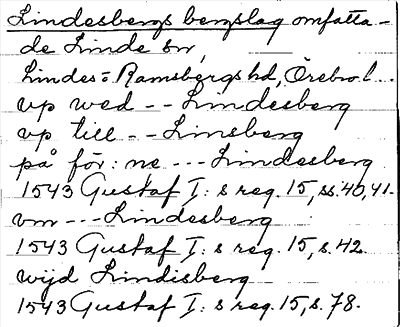 Lindesbergs bergslag omfatta-
de Linde sn,
Lindes- o Ramsbergs hd, Örebro l...
vp wed -- Lindesberg
vp till -- Linsberg
på för: ne --- Lindesberg
1543 Gustaf I: s reg. 15, ss. 40, 41.
vm --- Lindesberg
1543 Gustaf I: s reg. 15, s. 42.
wijd Lindisberg
1543 Gustaf I: s reg. 15, s. 78.